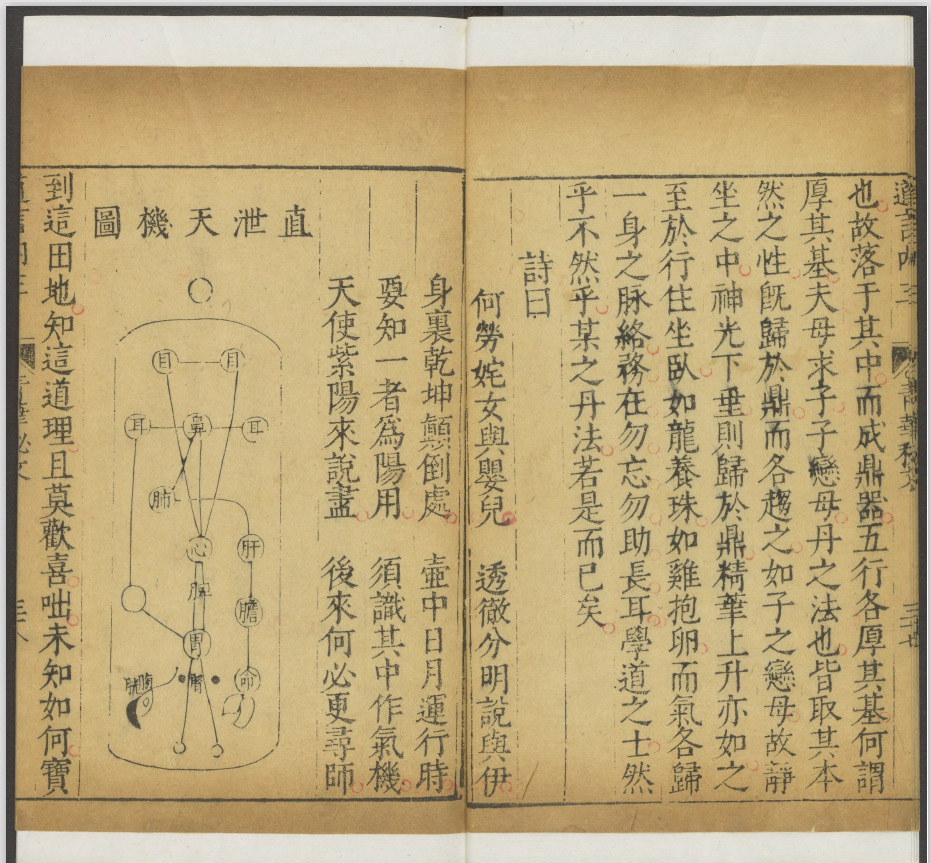 也故落于其中而成鼎器五行各厚其基何謂
厚其基夫母求子子戀母丹之法也皆取其本
然之性旣歸於鼎而各趨之如子之戀母故靜
坐之中神光下垂則歸於鼎精華上升亦如之
至於行住坐臥如龍養珠如雞抱卵而氣各歸
一身之脉絡務在勿忘勿助長耳學道之士然
乎不然乎某之丹法若是而已矣
詩曰
何勞姹女與嬰兒 透徹分明說與伊
身裏乾坤顛倒處 壺中日月運行時
要知一者爲陽用 須識其中作氣機
天使紫陽來說盡 後來何必更尋師
直泄天機圖
目 目
耳 鼻 耳
肺
心 肝
膽
胃
命
到這田地知這道理且莫歡喜咄未知如何寶